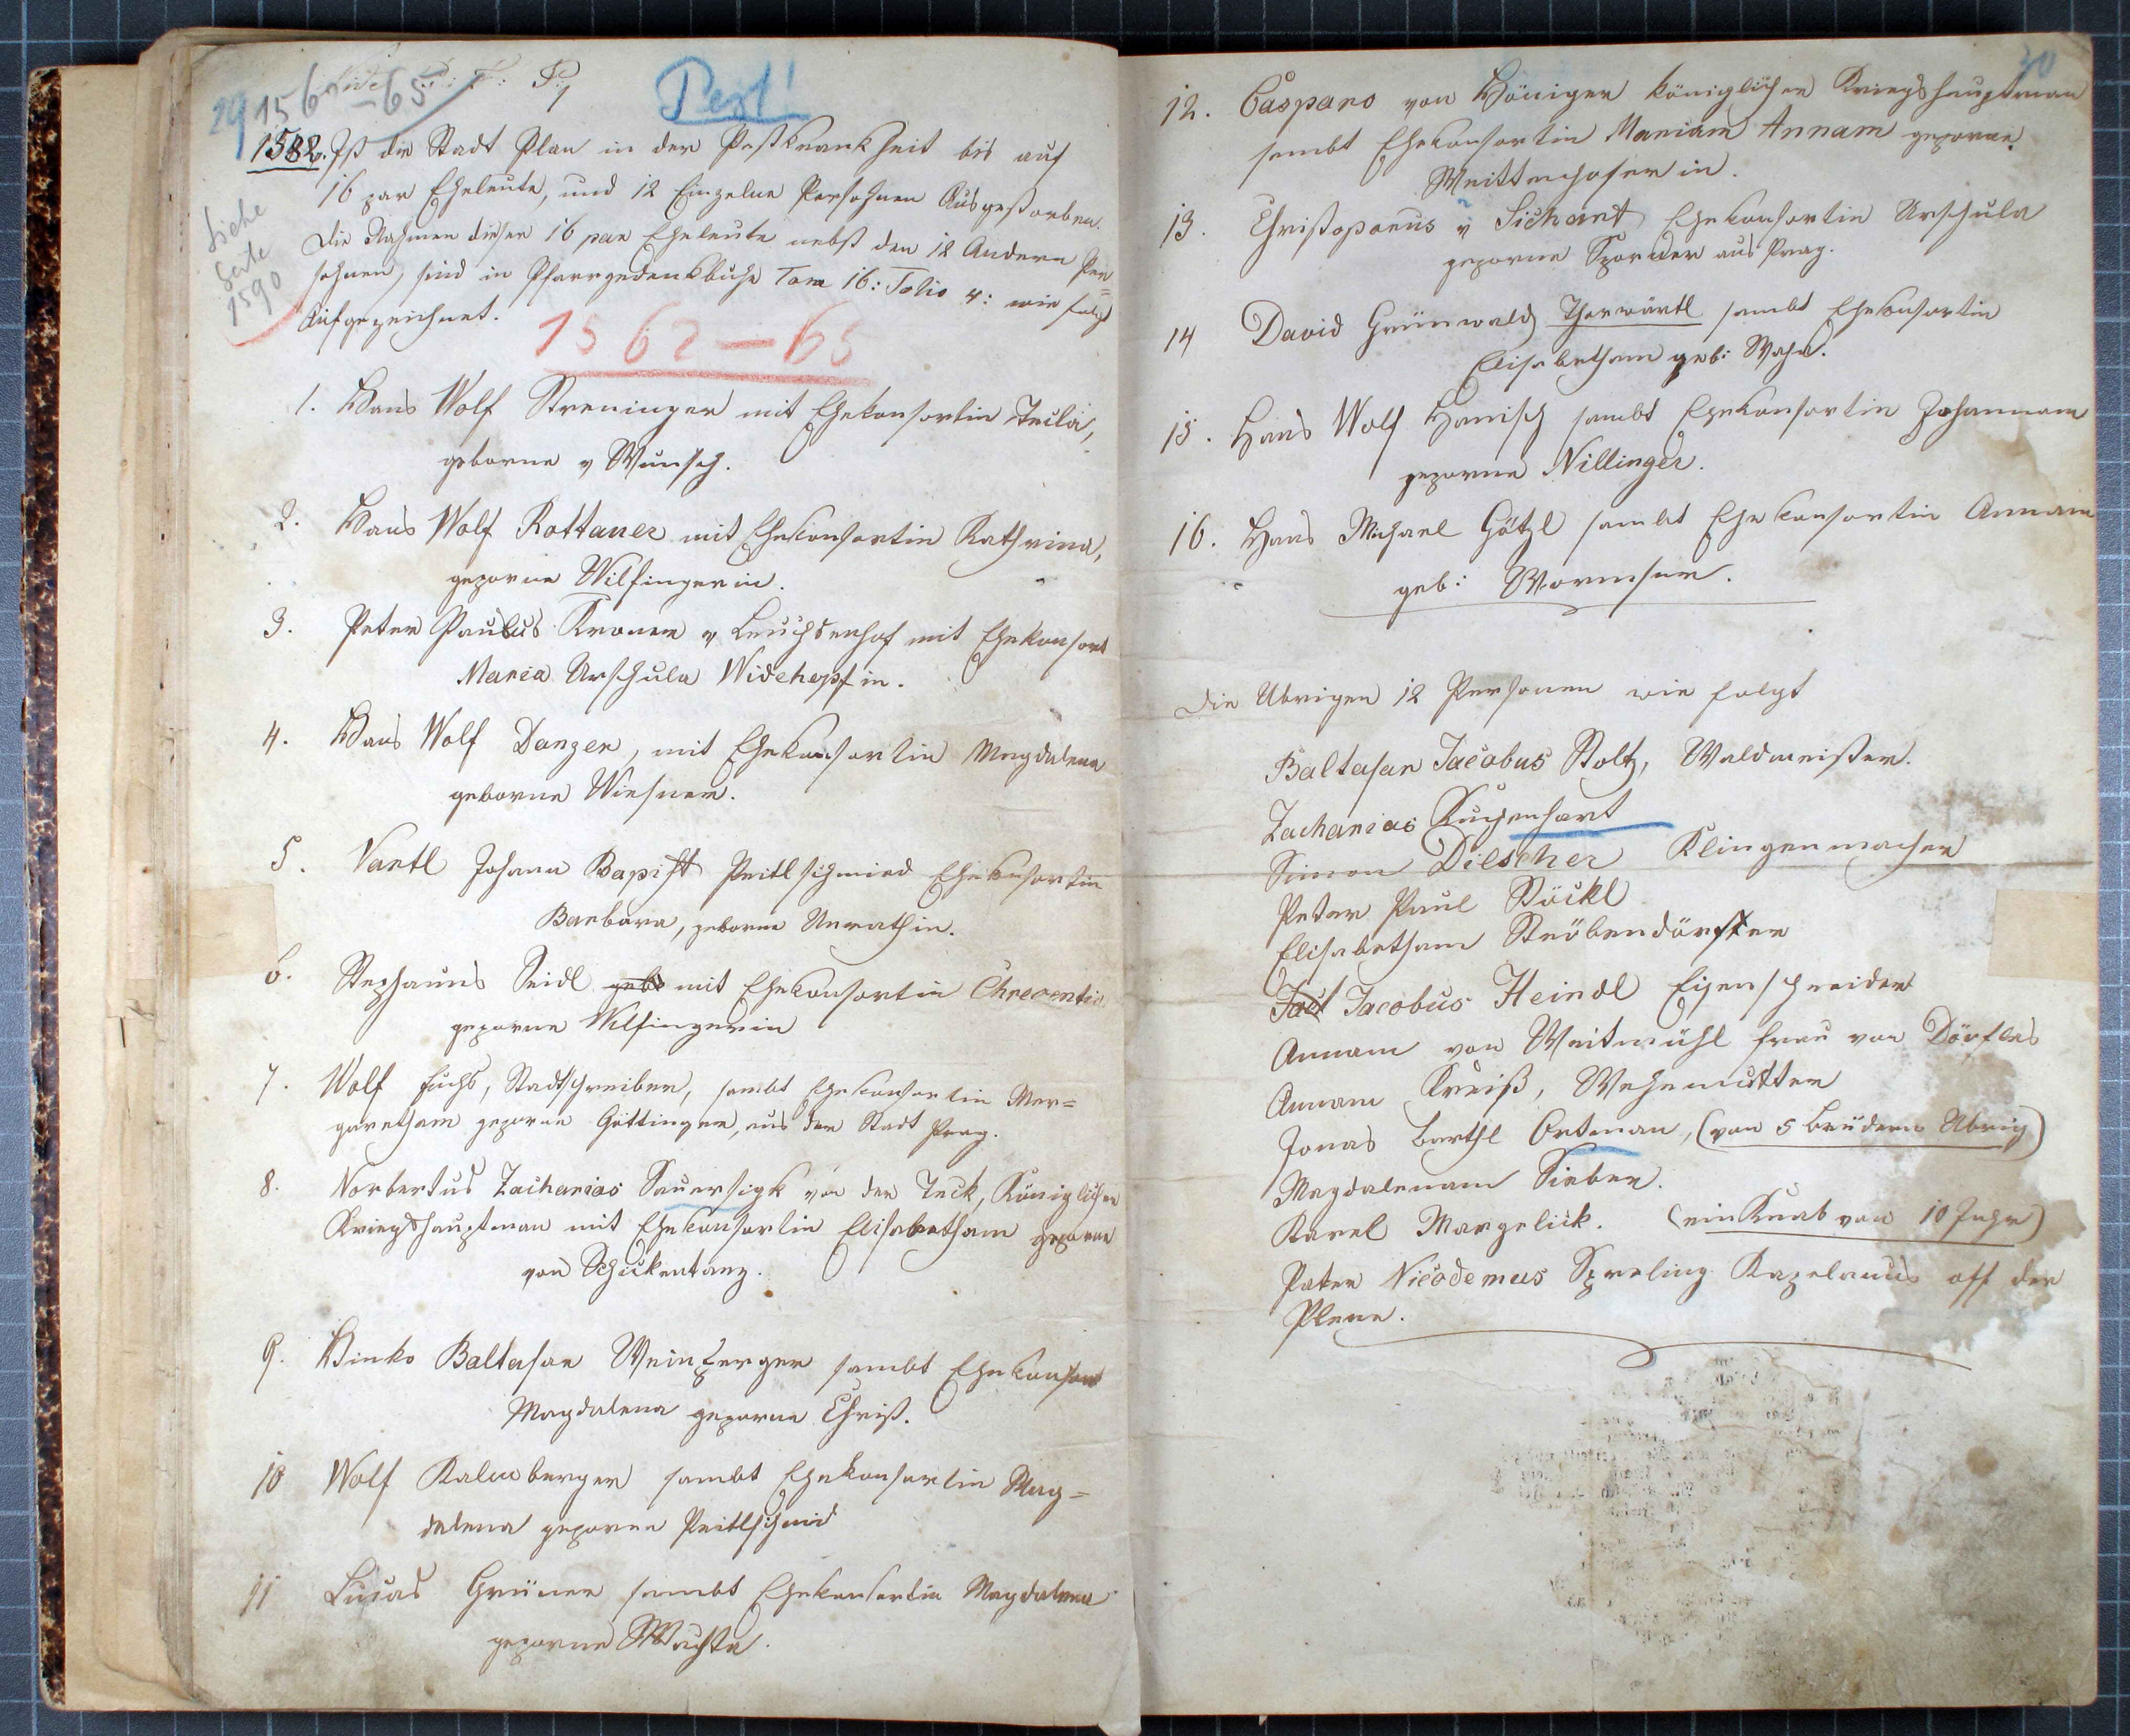 29
156
-65
Pest!
1582. Ist die Stadt Plan in der Pestkrankheit bis auf
16 par Eheleute, und 12 Einzelne Persohnen Ausgestorben.
Die Nahmen dieser 16 par Eheleute nebst den 12 Andern Per=
sohnen, sind in Pfarrgedenkbuche Tom 16: Folio 4: wie folgt
Aufgezeichnet.
Siehe
Seite
1590
1562-65
1. Hans Wolf Streninger mit Ehekonsortin Tecla,
geborne v Wunsch.
2. Hans Wolf Rottauer mit Ehekonsortin Kathrina,
geporne Wilfingerin.
3. Peter Paulus Kroner v Leuchsenhof mit Ehekonsort
Maria Urschula Widehopfin.
4. Hans Wolf Danzer, mit Ehekonsortin Magdalena
geborne Wiesner.
5. Vartl Johann Bapist Peitlschmied Ehekonsortin
Barbara, geborne Unrathin.
6. Stephanus Seidl geb mit Ehekonsortin Chrecentia
geporne Wilfingerin
7. Wolf Fuchs, Stadtschreiber, sambt Ehekonsortin Mar=
garetham geporne Göttinger, aus der Stadt Prag.
8. Norbertus Zacharias Sauersigk von der Teck, Königlicher
Kriegshauptman mit Ehekonsortin Elisabetham geporne
von Schickentanz.
9. Hinko Baltasar Weinzerger sambt Ehekonsort
Magdalena geporne Christ.
10 Wolf Kalmberger sambt Ehekonsortin Mag=
dalena geporne Peitlschmid
11 Lucas Grüner sambt Ehekonsortin Magdalena
geporne Wachta.
30
12. Casparo von Höniger königlicher Kriegshauptman
sambt Ehekonsortin Mariam Annam geporne
Weittenhoferin.
13. Christoporus v Sichart Ehekonsortin Urschula
geporne Sporner aus Prag.
14 David Grünwald Thorwärtl sambt Ehekonsortin
Elisabetham geb: Maha.
15. Hans Wolf Hanisch sambt Ehekonsortin Johannam
geporne Nillinger.
16. Hans Michael Götzl sambt Ehekonsortin Annam
geb: Wormser.
Die Ubrigen 12 Personen wie folgt
Baltasar Jacobus Stoltz, Waldmeister.
Zacharias Kuchenhart
Simon Dilscher Klingenmacher
Peter Paul Stöckl
Elisabetham Ströbendörfer
Jacobus Heindl Eisenschneider
Annam von Weitmühl Frau von Dörfles
Annam Kreiß, Wehemutter
Jonas Barthl Ortman, (von 5 Brüdern Ubrig)
Magdalenam Sieber.
Karel Margelick. (ein Knab von 10 Jahr)
Pater Nicodemus Spreling Kapelanus off der
Plene.